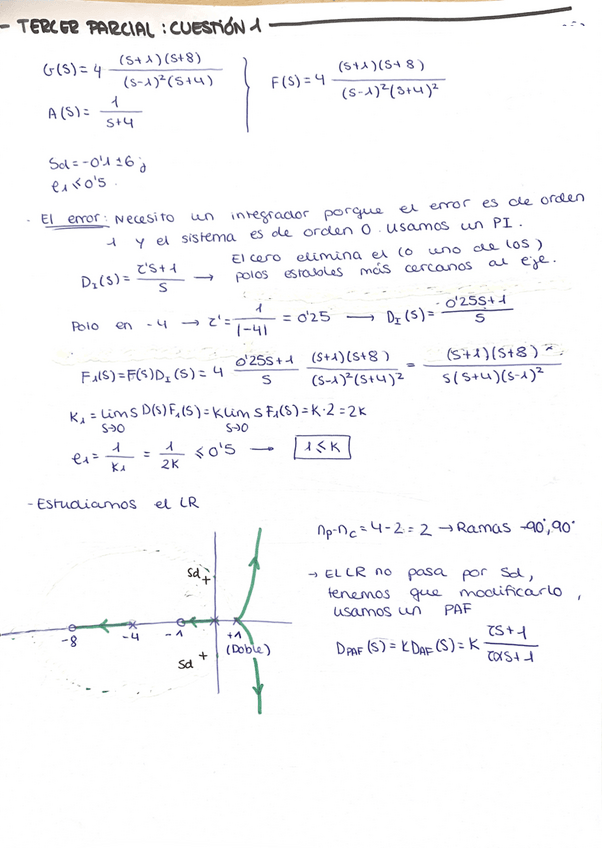 - TERCER PARCIAL: CUESTIÓN 1
G(S) = 4 (S+1)(S+8) / (S-1)²(S+4)
F(S) = 4 (S+1)(S+8) / (S-1)²(S+4)²
A(S) = 1 / S+4
Sd = -0'1 ± 6j
e1 ≤ 0'5.
- El error: Necesito un integrador porque el error es de orden
1 y el sistema es de orden 0. Usamos un PI.
DI(S) = τ'S+1 / S → El cero elimina el (o uno de los)
polos estables más cercanos al eje.
Polo en -4 → τ' = 1 / |-4| = 0'25 → DI(S) = 0'25S+1 / S
F1(S) = F(S)DI(S) = 4 0'25S+1 / S (S+1)(S+8) / (S-1)²(S+4)² = (S+1)(S+8) / S(S+4)(S-1)²
K1 = lim S D(S)F1(S) = K lim S F1(S) = K·2 = 2K
S→0 S→0
e1 = 1 / K1 = 1 / 2K ≤ 0'5 → 1 ≤ K
- Estudiamos el LR
np-nc = 4-2 = 2 → Ramas -90°, 90°
→ El LR no pasa por Sd,
tenemos que modificarlo,
usamos un PAF
DPAF(S) = K DAF(S) = K τS+1 / ταS+1
Sd
-8 -4 -1 +1
(Doble)
Sd